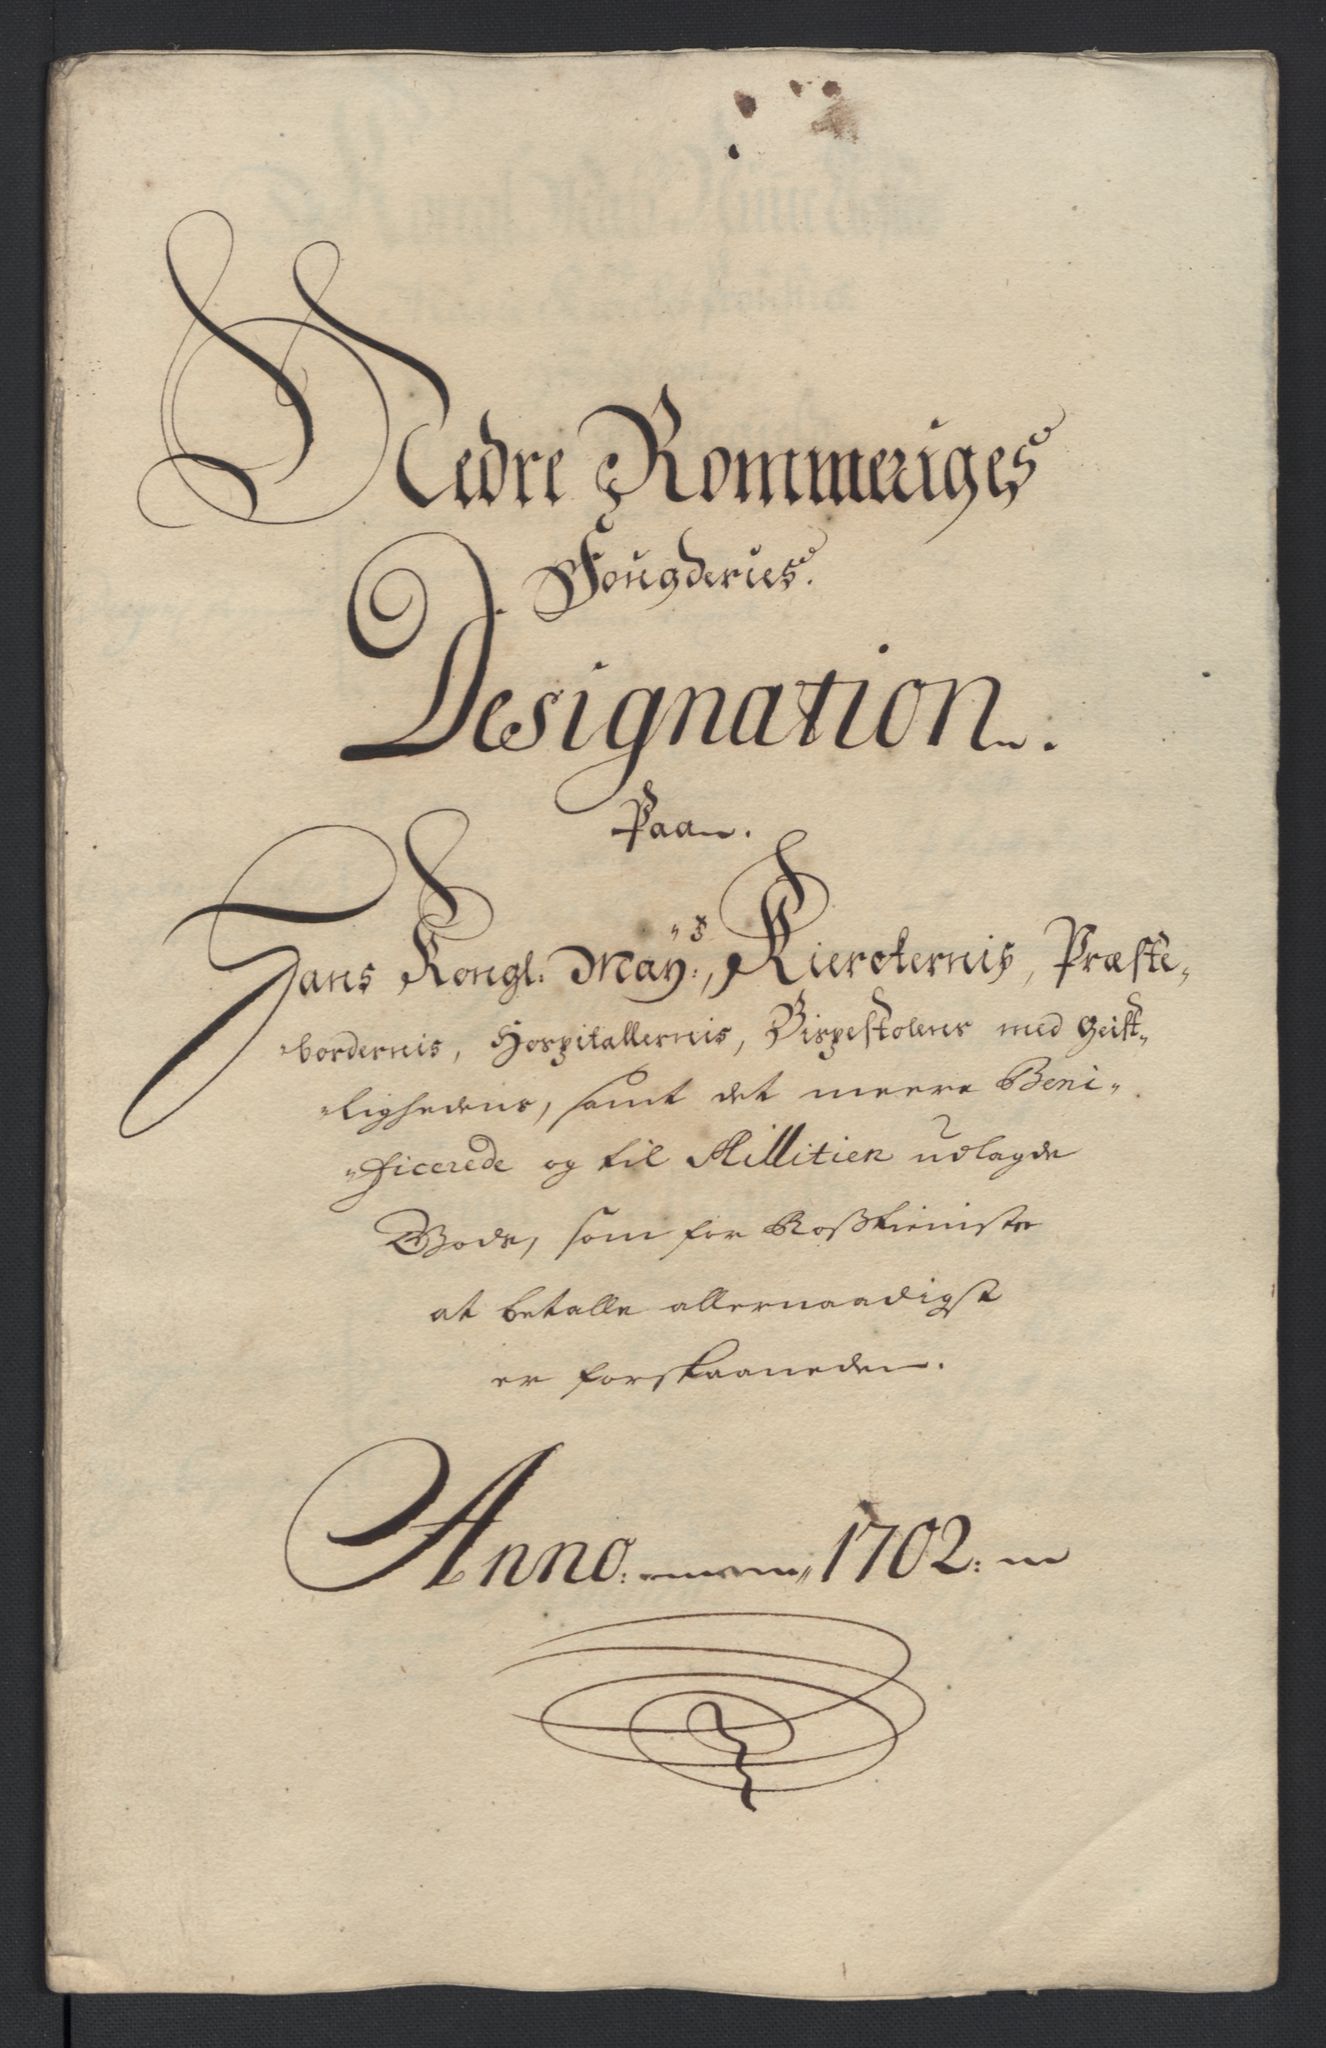 Nedre Rommeriges
Fougderies.
Designation.
Paa.
Hans Kongl: May:ts, Kierckernis, Præste-
bordernis, Hospitallernis, Bispestolens med Geist-
lighedens, samt det meere Beni-
ficerede og til Millitien udlagde
Gods, som for Rosstieniste
at betalle allernaadigst
er forskaaneden.
Anno: 1702: